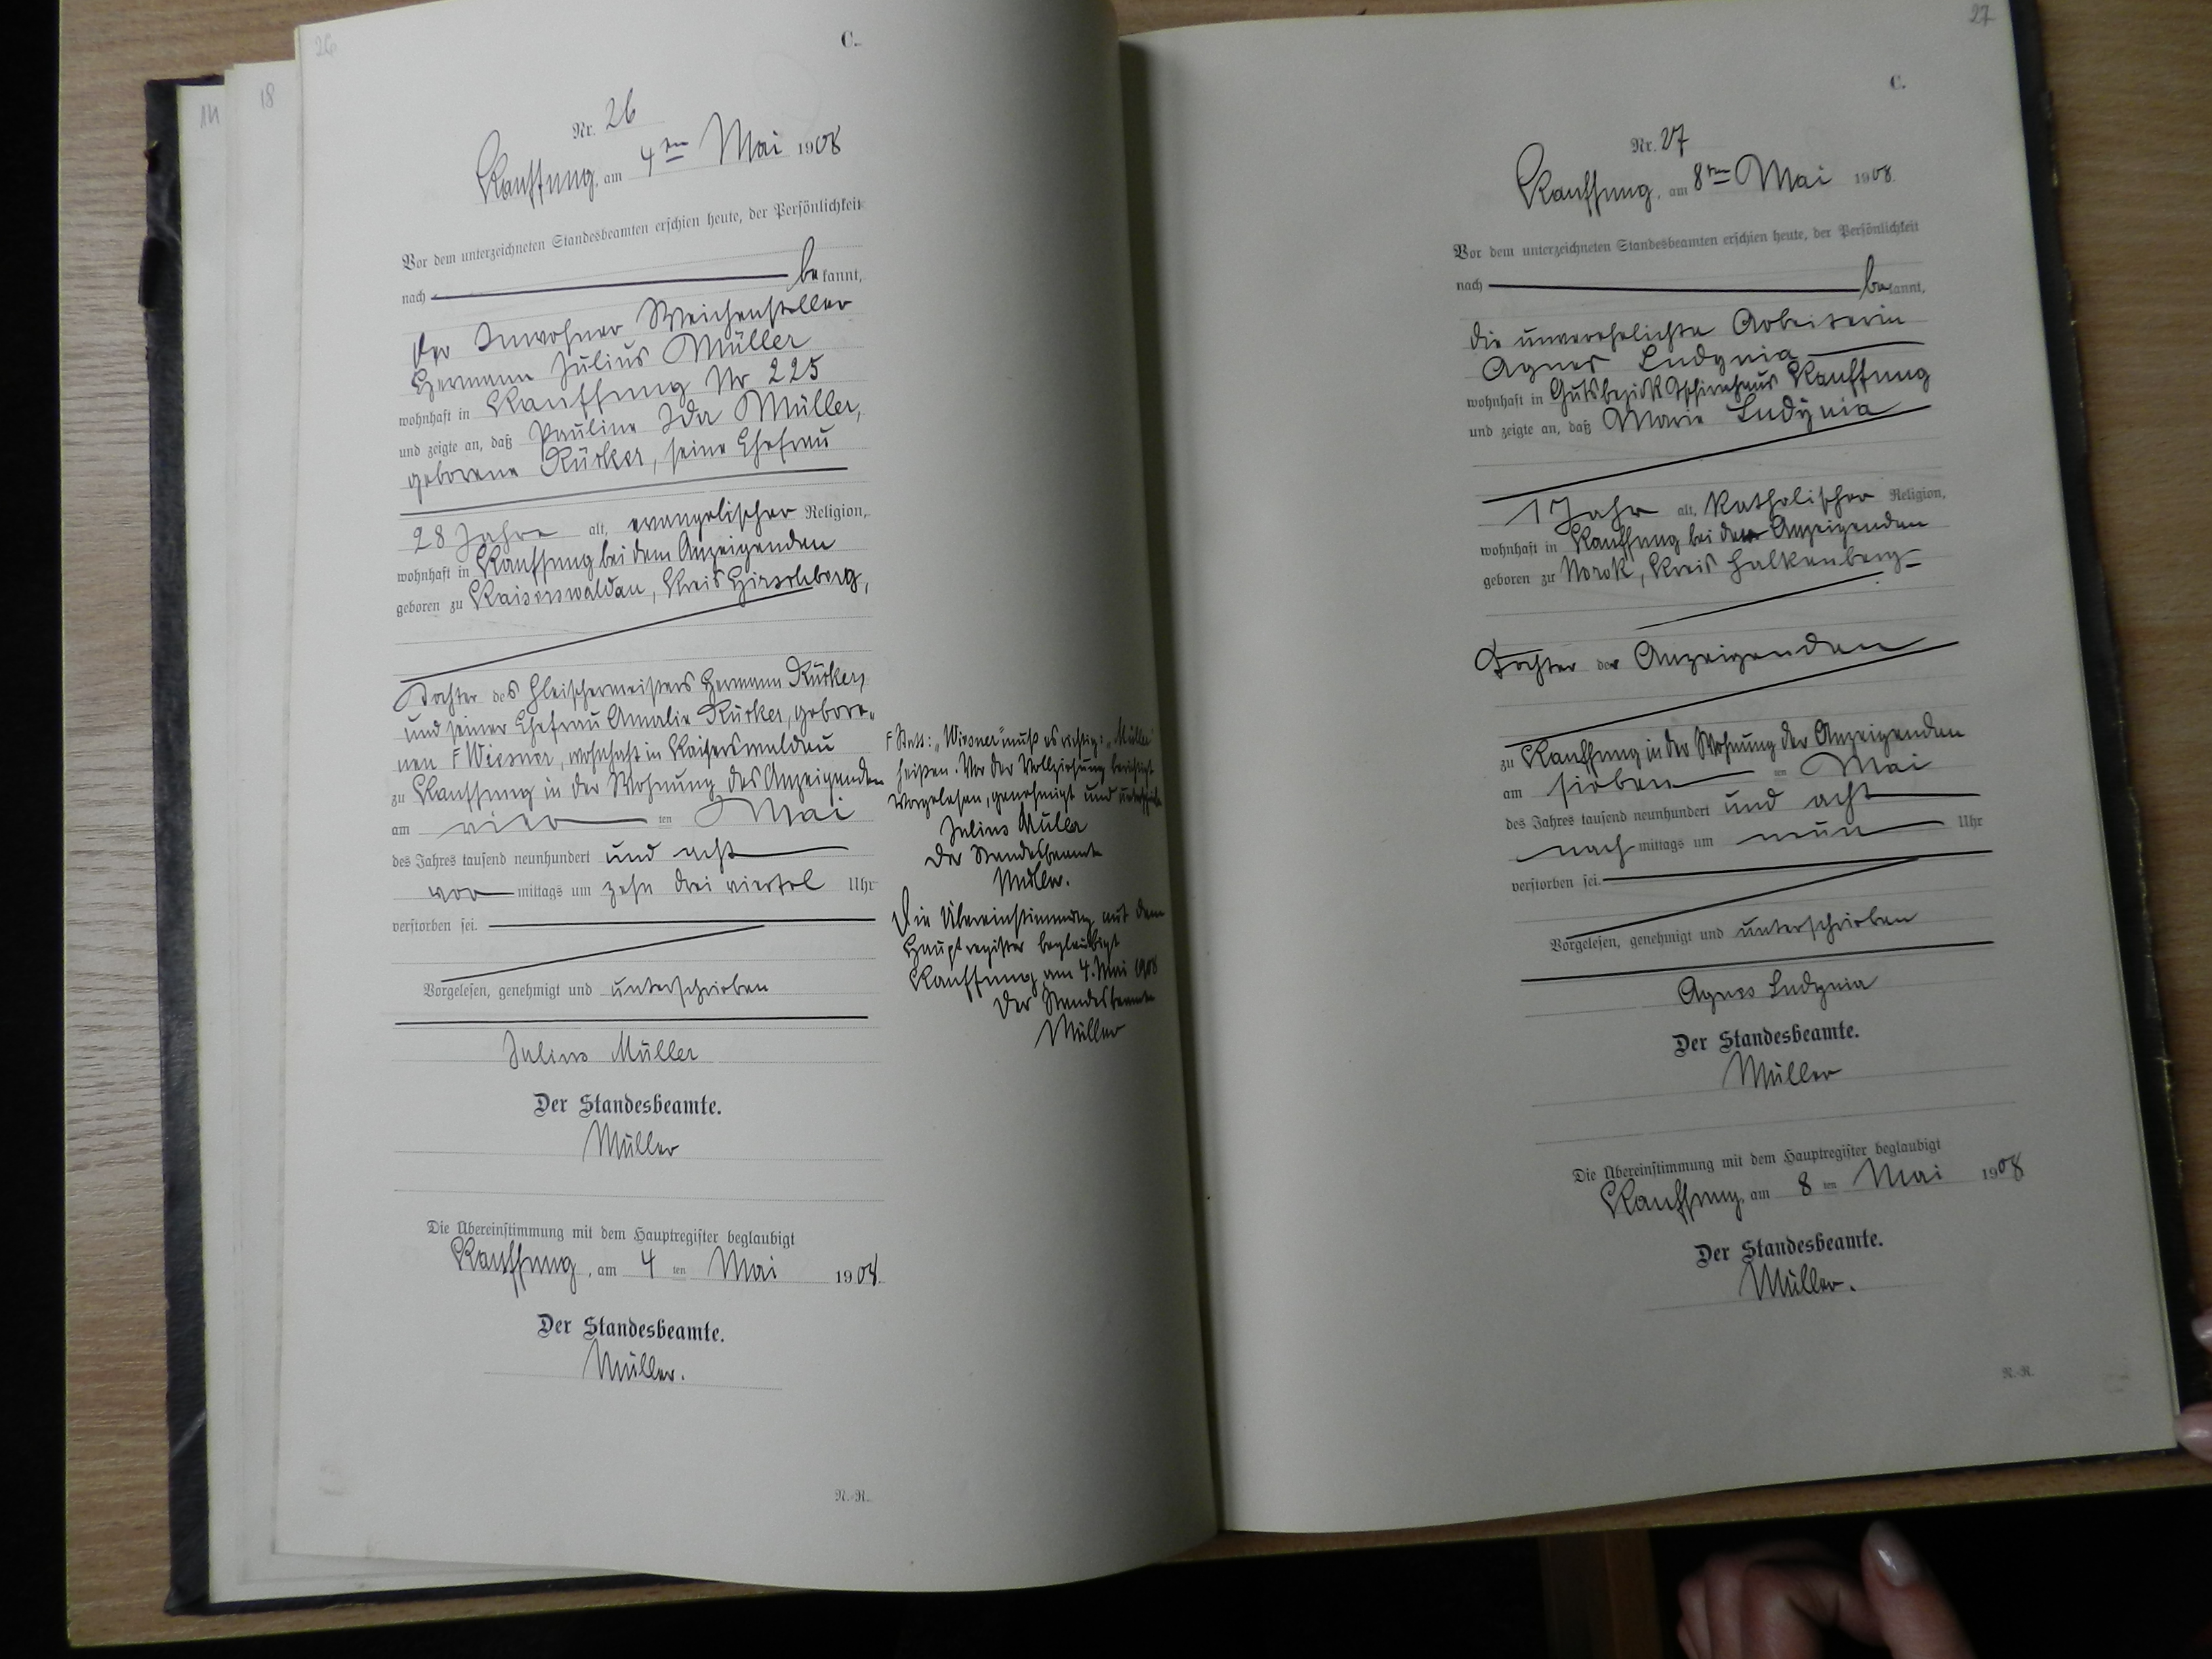 14
18
26
C.
Nr. 26
Kauffung, am 4ten Mai 1908
Vor dem unterzeichneten Standesbeamten erschien heute, der Persönlichkeit
nach be kannt,
der Inwohner Weichensteller
Hermann Julius Müller
wohnhaft in Kauffung Nr 225
und zeigte an, daß Pauline Ida Müller,
geborene Rücker, seine Ehefrau
28 Jahre alt, evangelischer Religion,
wohnhaft in Kauffung bei dem Anzeigenden
geboren zu Kaiserswaldau, Kreis Hirschberg,
Tochter des Fleischermeisters Hermann Rücker,
und seiner Ehefrau Amalie Rücker, gebore-
nen F Wiesner, wohnhaft in Kaiserswaldau
zu Kauffung in der Wohnung des Anzeigenden
am vier ten Mai
des Jahres tausend neunhundert und acht
vor mittags um zehn drei viertel Uhr
verstorben sei.
Vorgelesen, genehmigt und unterschrieben
Julius Müller
Der Standesbeamte.
Müller
Die Übereinstimmung mit dem Hauptregister beglaubigt
Kauffung, am 4 ten Mai 1908.
Der Standesbeamte.
Müller.
N.-R.
F Statt: „Wiesner" muß es richtig: „Müller"
heißen. Vor der Vollziehung berichtigt
Vorgelesen, genehmigt und
Julius Müler
Der Standesbeamte
Müller.
Die Übereinstimmung mit dem
Hauptregister beglaubigt
Kauffung am 4. Mai 1908
Der Standesbeamte
Müller
27
C.
Nr. 27
Kauffung, am 8ten Mai 1908.
Vor dem unterzeichneten Standesbeamten erschien heute, der Persönlichkeit
nach be kannt,
die unverehelichte Arbeiterin
Agnes Ludynia
wohnhaft in Gutsbezirk Tschirnhaus Kauffung
und zeigte an, daß Marie Ludynia
1 Jahr alt, katholischer Religion,
wohnhaft in Kauffung bei der Anzeigenden
geboren zu Norok, Kreis Falkenberg
Tochter der Anzeigenden
zu Kauffung in der Wohnung der Anzeigenden
am sieben ten Mai
des Jahres tausend neunhundert und acht
nach mittags um neun Uhr
verstorben sei.
Vorgelesen, genehmigt und unterschrieben
Agnes Ludynia
Der Standesbeamte.
Müller
Die Übereinstimmung mit dem Hauptregister beglaubigt
Kauffung, am 8 ten Mai 1908
Der Standesbeamte.
Müller.
N.-R.